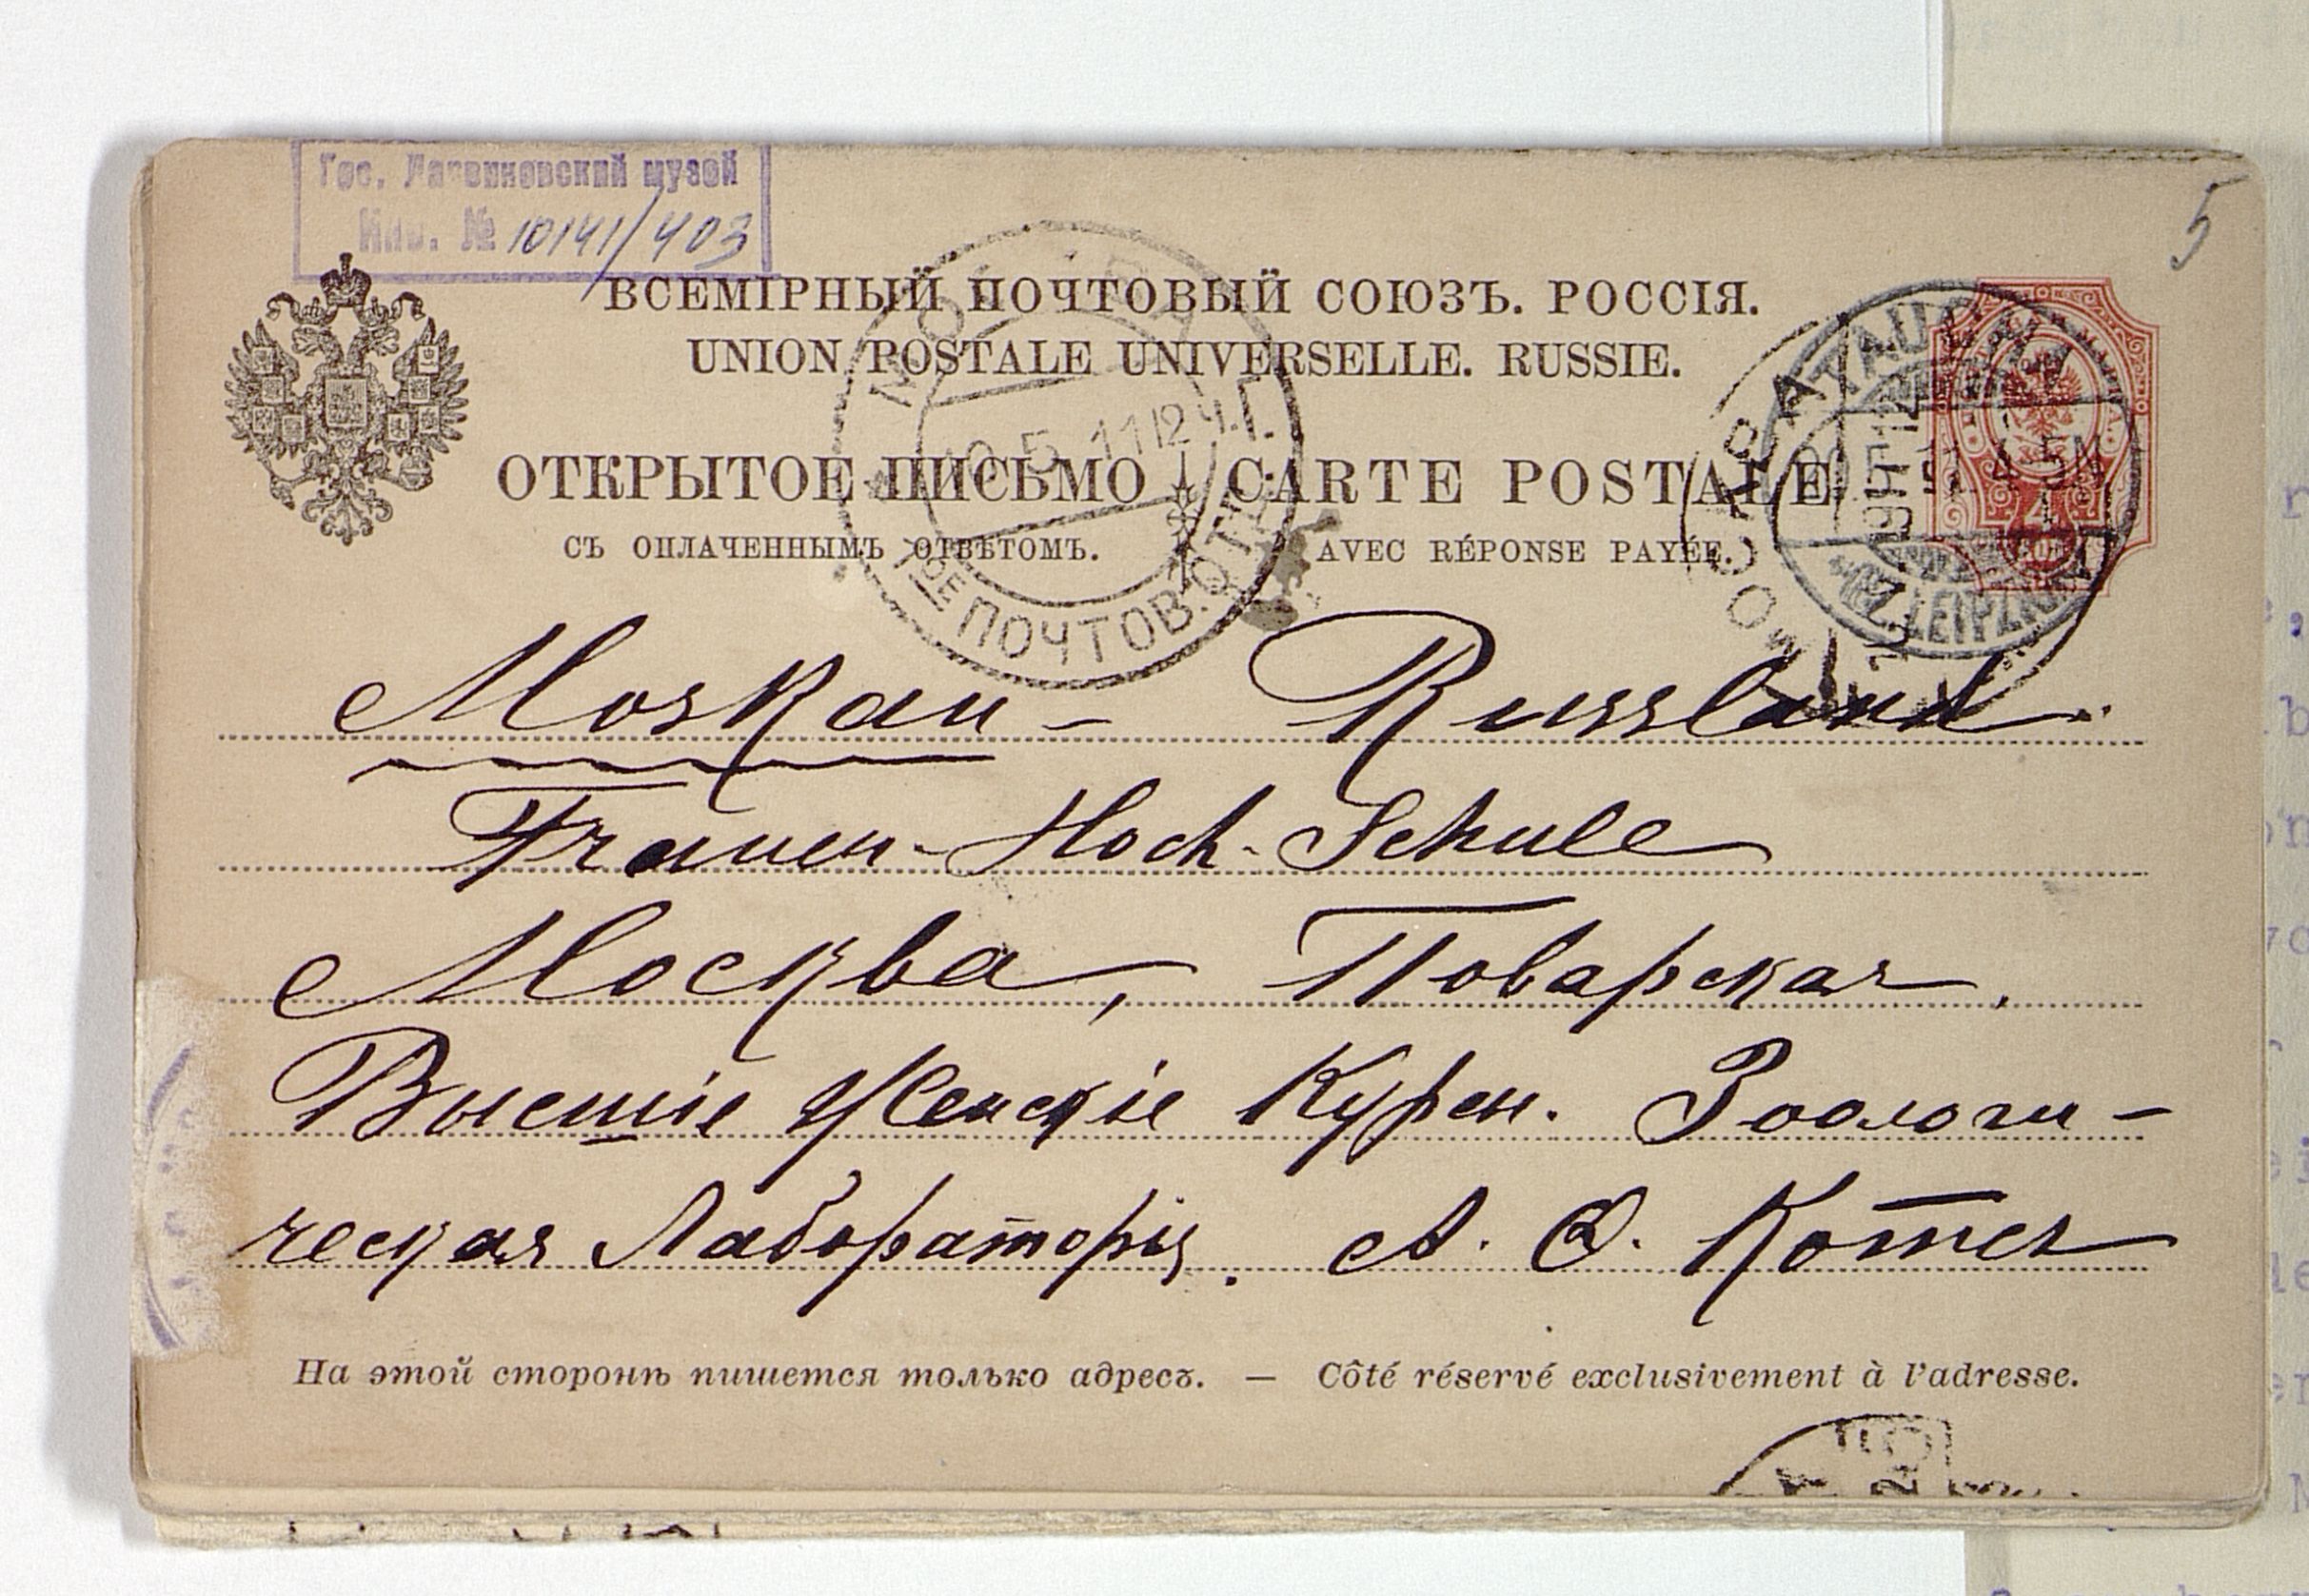 Гос. Дарвиновский музей
Инв. № 10141/403
5
ВСЕМІРНЫЙ ПОЧТОВЫЙ СОЮЗЪ. РОССІЯ.
UNION POSTALE UNIVERSELLE. RUSSIE.
ОТКРЫТОЕ ПИСЬМО CARTE POSTALE
СЪ ОПЛАЧЕННЫМЪ ОТВѢТОМЪ. AVEC RÉPONSE PAYÉE.
МОСКВА
10.5.11 12 Ч.
1ОЕ ПОЧТОВ. ОТД.
МОСКВА
TAUCHA
LEIPZIG
Moskau - Russland.
Frauen-Hoch-Schule
Москва, Поварская,
Высшіе Женскіе Курсы. Зоологи-
ческая Лабораторія. А. Ѳ. Котсъ
На этой сторонѣ пишется только адресъ. — Côté réservé exclusivement à l'adresse.